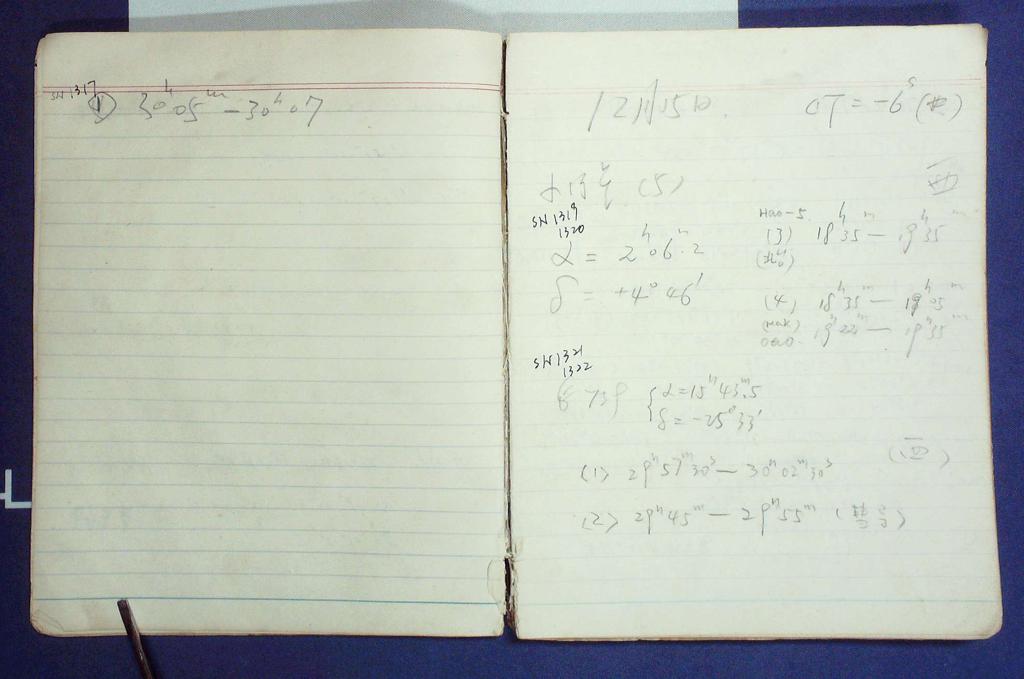 SN 1317
① 30ʰ05ᵐ — 30ʰ07
12月15日. ΔT = -6ˢ
(5)
SN 1319
1320
α = 2ʰ06ᵐ.2
δ = +4° 46′
Hao-5.
(3) 18ʰ35ᵐ — 19ʰ35ᵐ
(4) 18ʰ35ᵐ — 19ʰ05ᵐ
19ʰ22ᵐ — 19ʰ55ᵐ
SN 1321
1322
739 { α = 15ʰ43ᵐ.5
δ = -25°33′
(西)
(1) 29ʰ57ᵐ30ˢ — 30ʰ02ᵐ30ˢ
(2) 29ʰ45ᵐ — 29ʰ55ᵐ